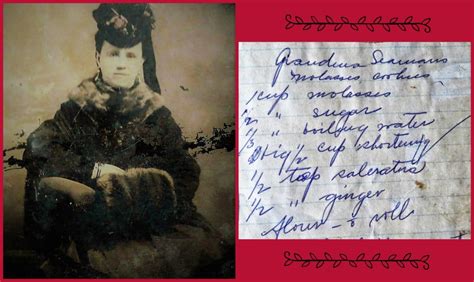 Grandma Seamans
molasses cookies
1 cup molasses
1/2 " sugar
1/3 " boiling water
big 1/2 cup shortening
1/2 tsp saleratus
1/2 " ginger
flour - to roll